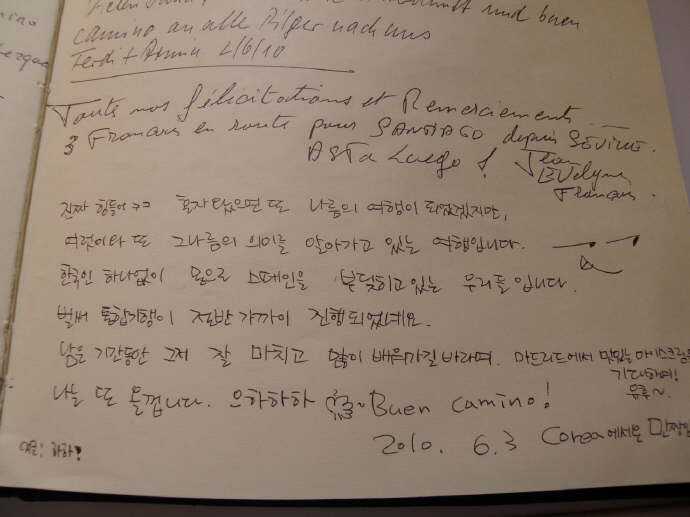 camino an alle Pilger nach uns
Ferdi + Annia 2/6/10
Toute nos félicitations et Remerciements
3 Francais en route pour SANTIAGO depuis SEVILLE.
ASTA Luego ! Jean
EVelyne
François
진짜 힘들어 ㅋㅋ 혼자 왔으면 또 나름의 여행이 되었겠지만,
여럿이와 또 그나름의 의미를 알아가고 있는 여행입니다.
한국인 하나없이 몸으로 스페인을 부딪히고있는 우리들입니다.
벌써 통합기행이 절반 가까이 진행되었네요.
남은 기간동안 그저 잘 마치고 많이 배워가길 바라며. 마드리드에서 맛있는 아이스크림을
기대하며!
나는 또 즐겁니다. 으하하하 Buen camino!
2010. 6.3 Corea에서온
하하?